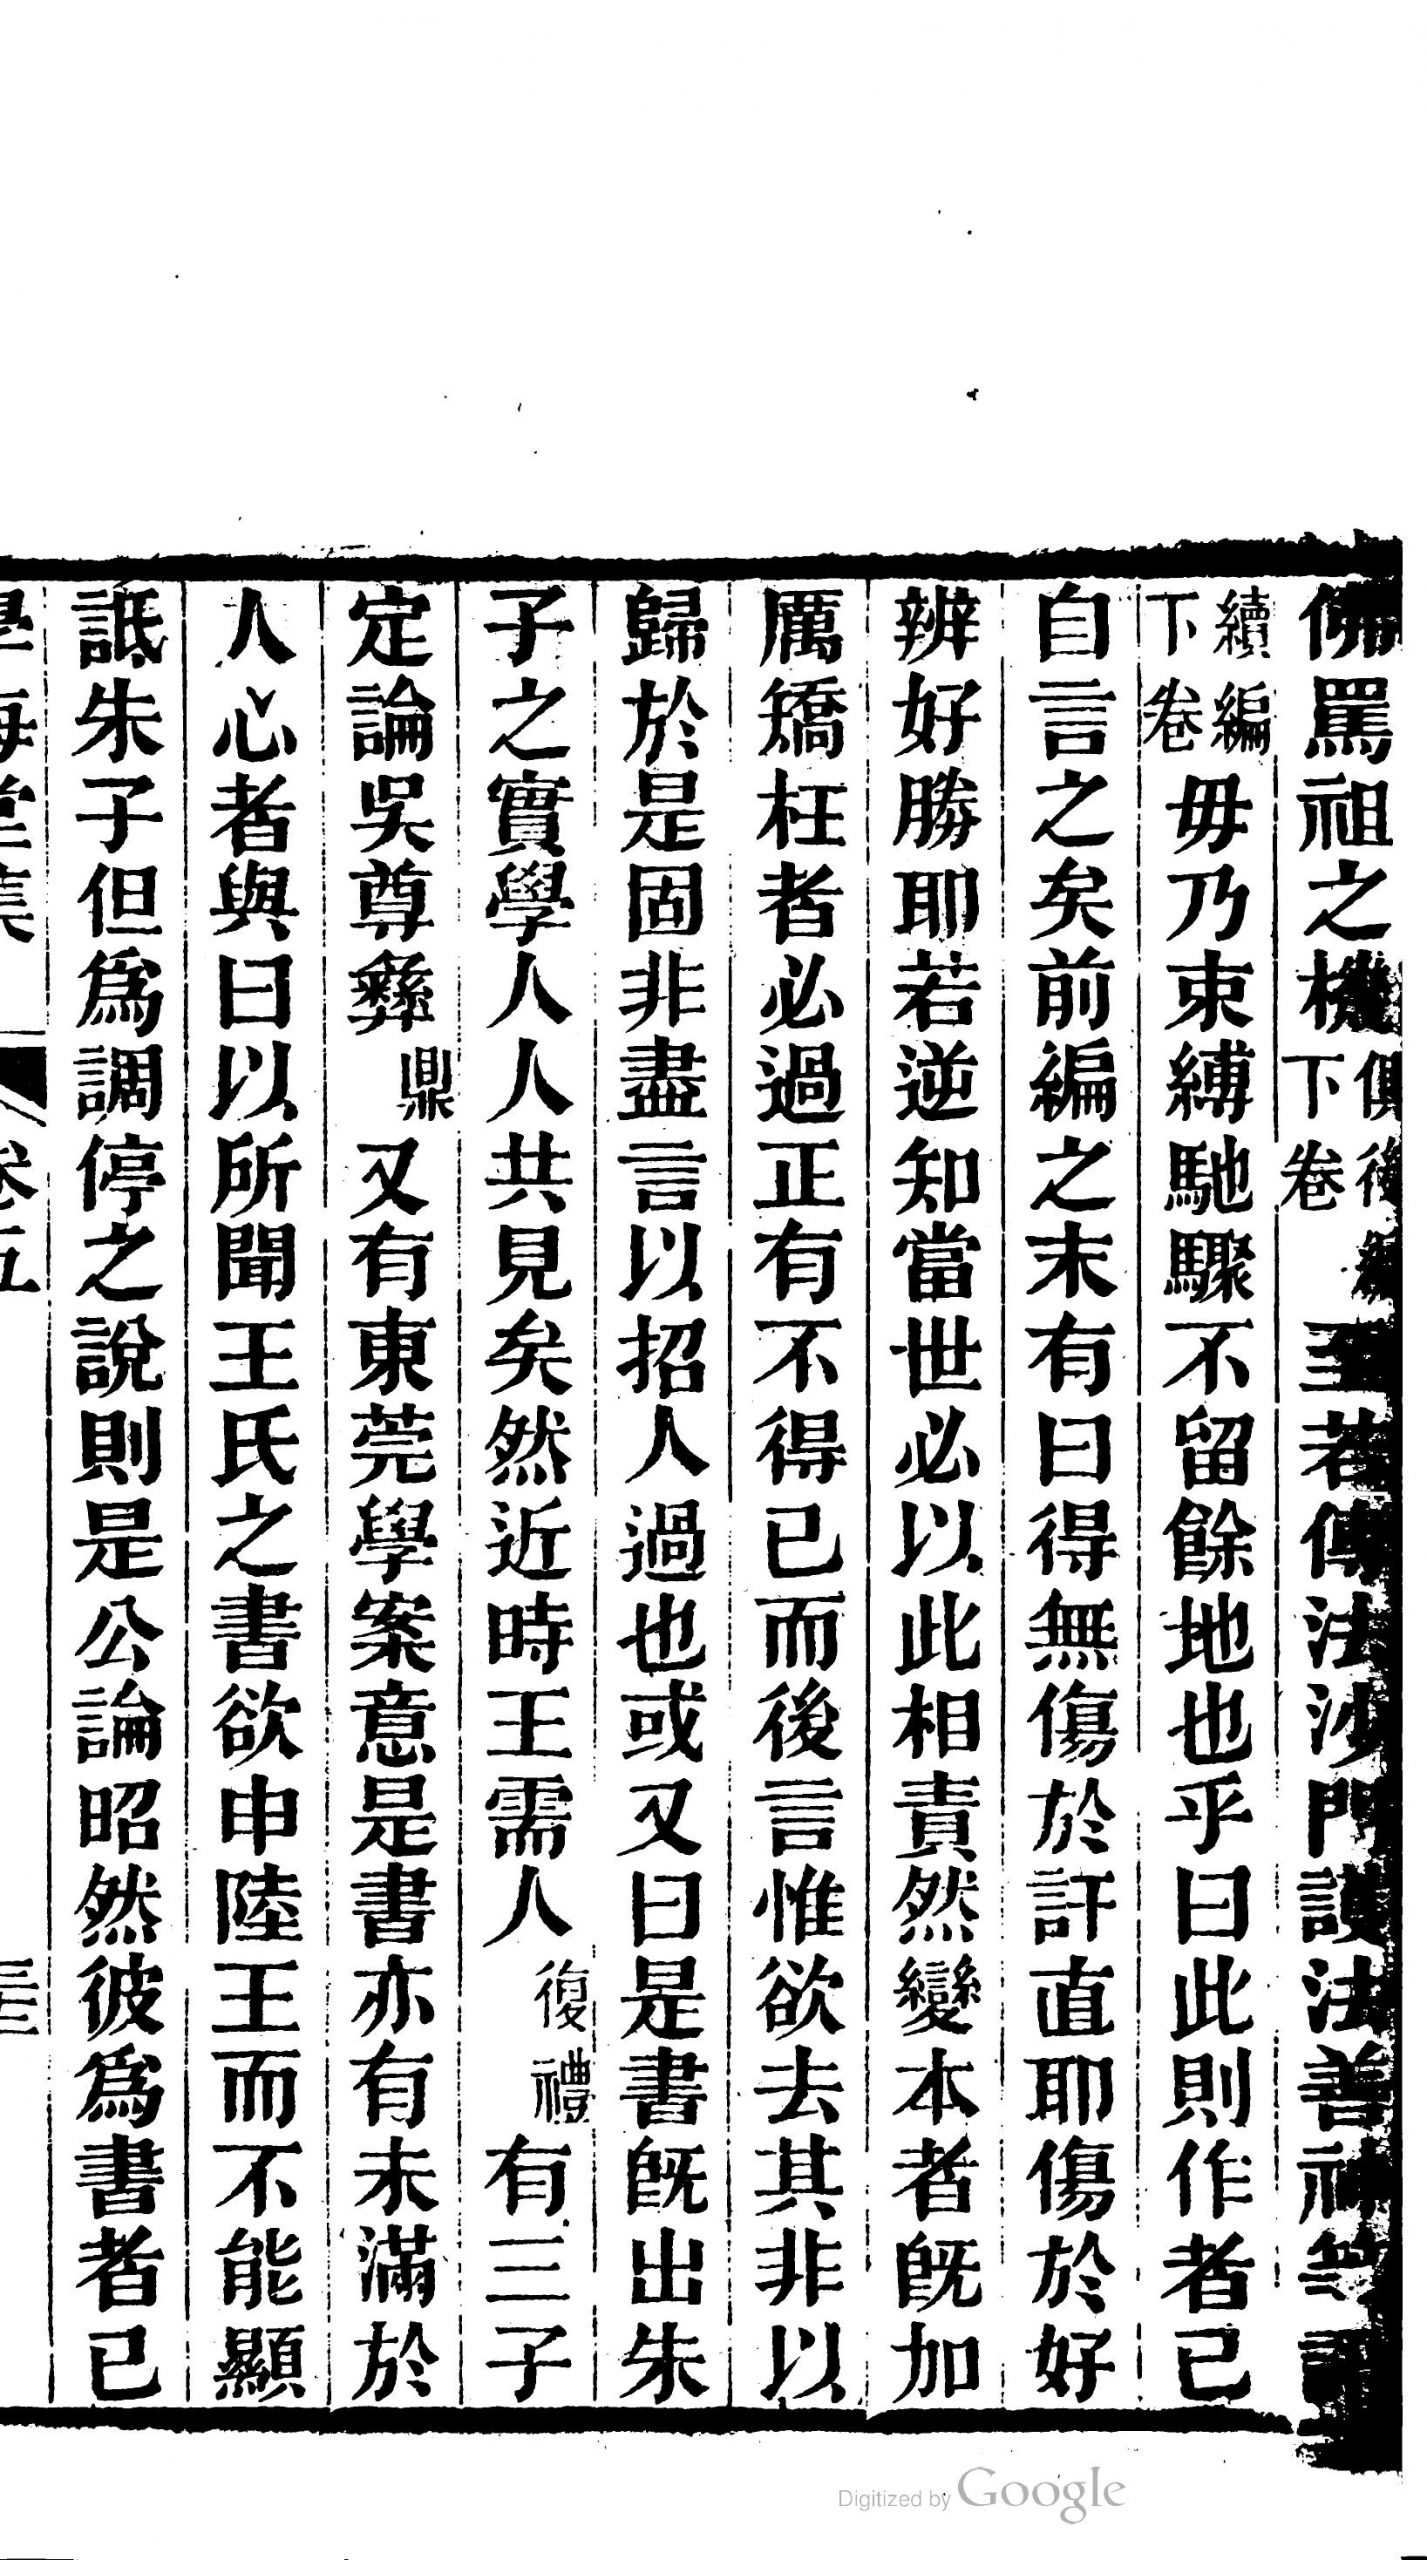 佛罵祖之機俱後編下卷至若傳法沙門護法善神等語
續編下卷毋乃束縛馳驟不留餘地也乎曰此則作者已
自言之矣前編之末有曰得無傷於訐直耶傷於好
辨好勝耶若逆知當世必以此相責然變本者旣加
厲矯枉者必過正有不得已而後言惟欲去其非以
歸於是固非盡言以招人過也或又曰是書旣出朱
子之實學人人共見矣然近時王需人復禮有三子
定論吳尊彝鼎又有東莞學案意是書亦有未滿於
人心者與曰以所聞王氏之書欲申陸王而不能顯
詆朱子但爲調停之說則是公論昭然彼爲書者已
學海堂集 卷五
Digitized by Google